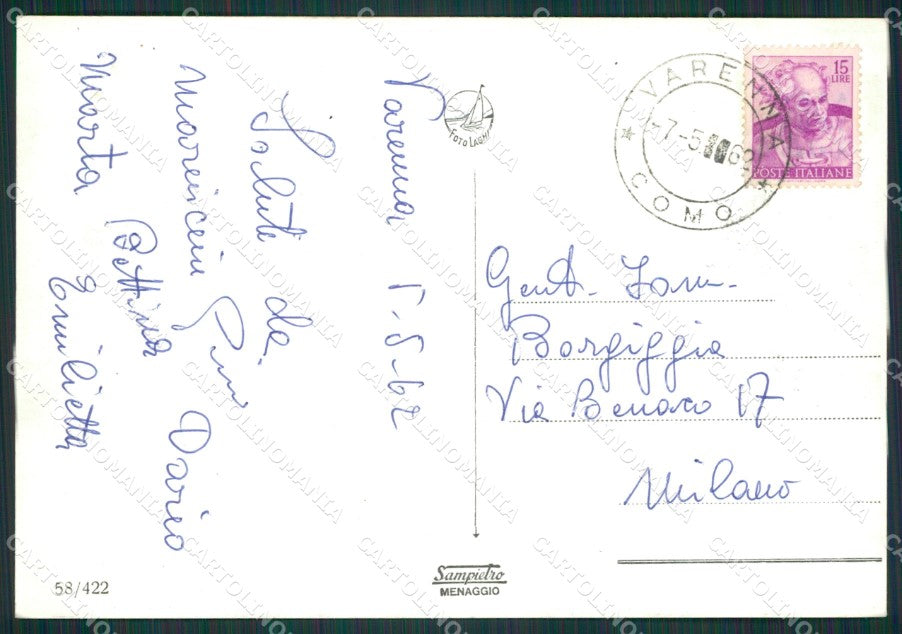 Varenna 1-5-62
Saluti da
Mariuccia Pino Dario
Marta Bettina
Emilietta
FOTO LAGHI
VARENNA
7-5 62
COMO
15
LIRE
POSTE ITALIANE
Gent. Fam.
Borgiggia
Via Benaco 17
Milano
Sampietro
MENAGGIO
58/422
CARTOLINOMANIA